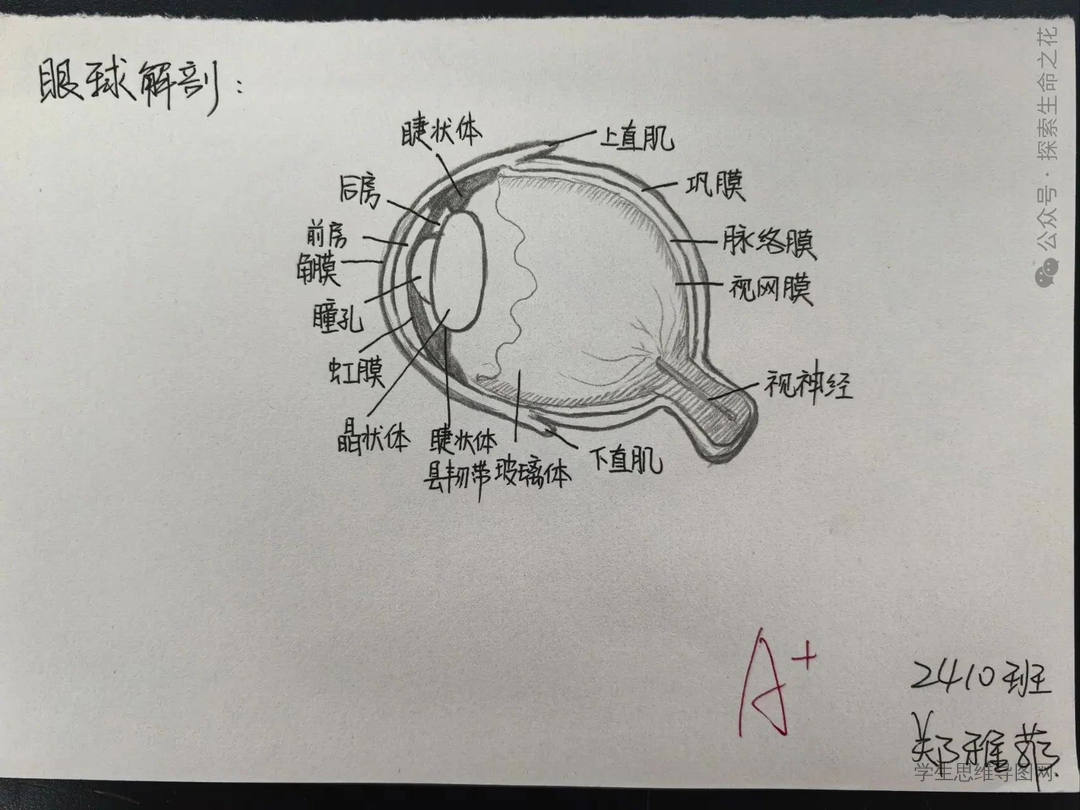 眼球解剖:
睫状体
上直肌
后房
巩膜
前房
脉络膜
角膜
视网膜
瞳孔
虹膜
视神经
晶状体
睫状体
县韧带
玻璃体
下直肌
A+
2410班
郑雅
公众号·探索生命之花
学生思维导图网